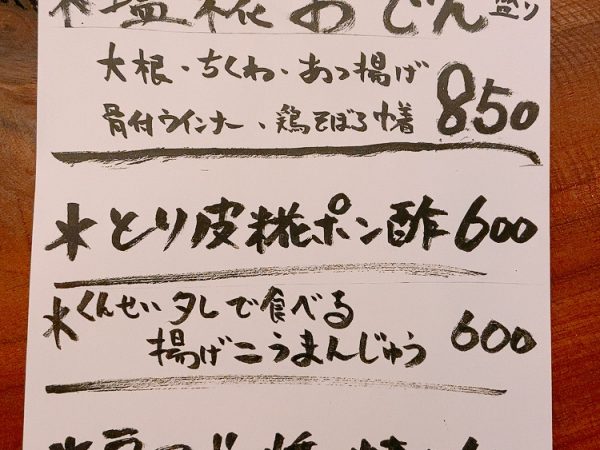 *塩糀おでん盛り
大根・ちくわ・あつ揚げ
骨付ウインナー、鶏そぼろ巾着 850
*とり皮糀ポン酢 600
*くんせい夕しで食べる
揚げこうまんじゅう 600